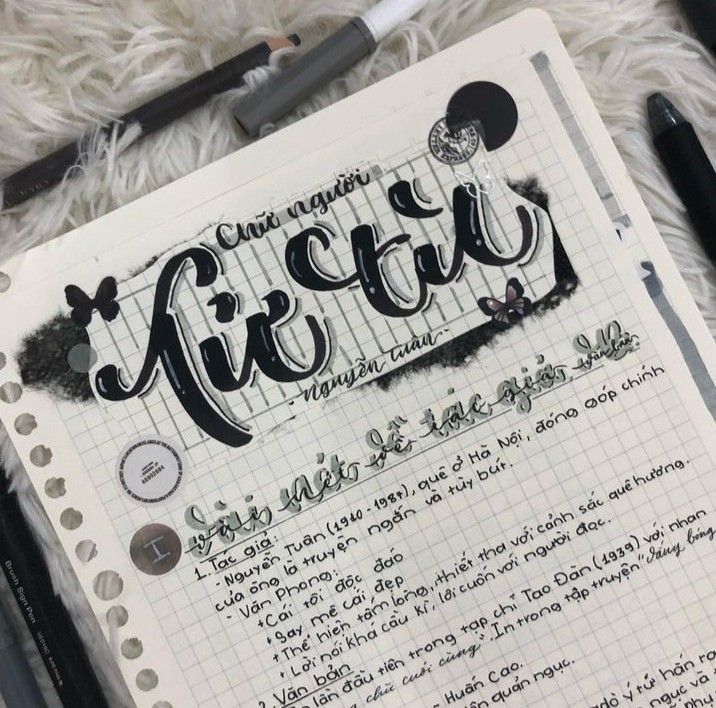 Chữ người
Tử tù
- Nguyễn Tuân -
I
Vài nét về tác giả,
1. Tác giả:
- Nguyễn Tuân (1910-1987), quê ở Hà Nội, đóng góp chính
của ông là truyện ngắn và tùy bút.
- Văn Phong:
+ Cái tôi độc đáo
+ Say mê cái đẹp
+ Thể hiện tấm lòng, thiết tha với cảnh sắc quê hương.
+ Lối nói khá cầu kì, lôi cuốn với người đọc.
2. Văn bản
lần đầu tiên trong tạp chí Tao Đàn (1939) với nhan
chữ cuối cùng". In trong tập truyện "Vang bóng
- Huấn Cao.
quản ngục.
Brush Sign Pen